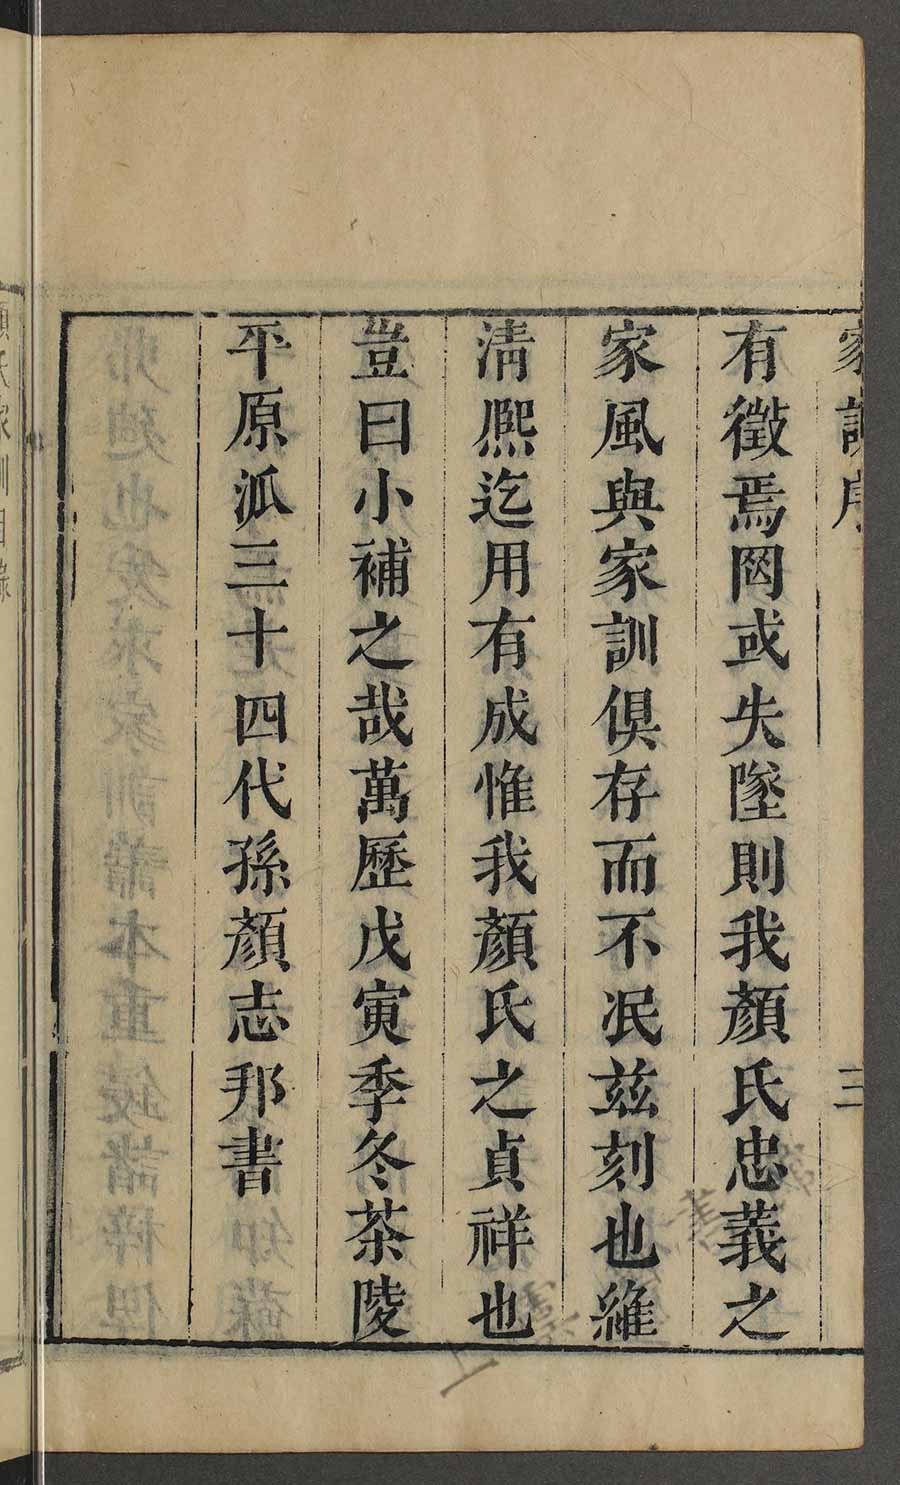 家訓序 三
有徵焉罔或失墜則我顏氏忠義之
家風與家訓俱存而不泯兹刻也維
清熈迄用有成惟我顏氏之貞祥也
豈曰小補之哉萬歷戊寅季冬茶陵
平原派三十四代孫顏志邦書
顏氏家訓目錄